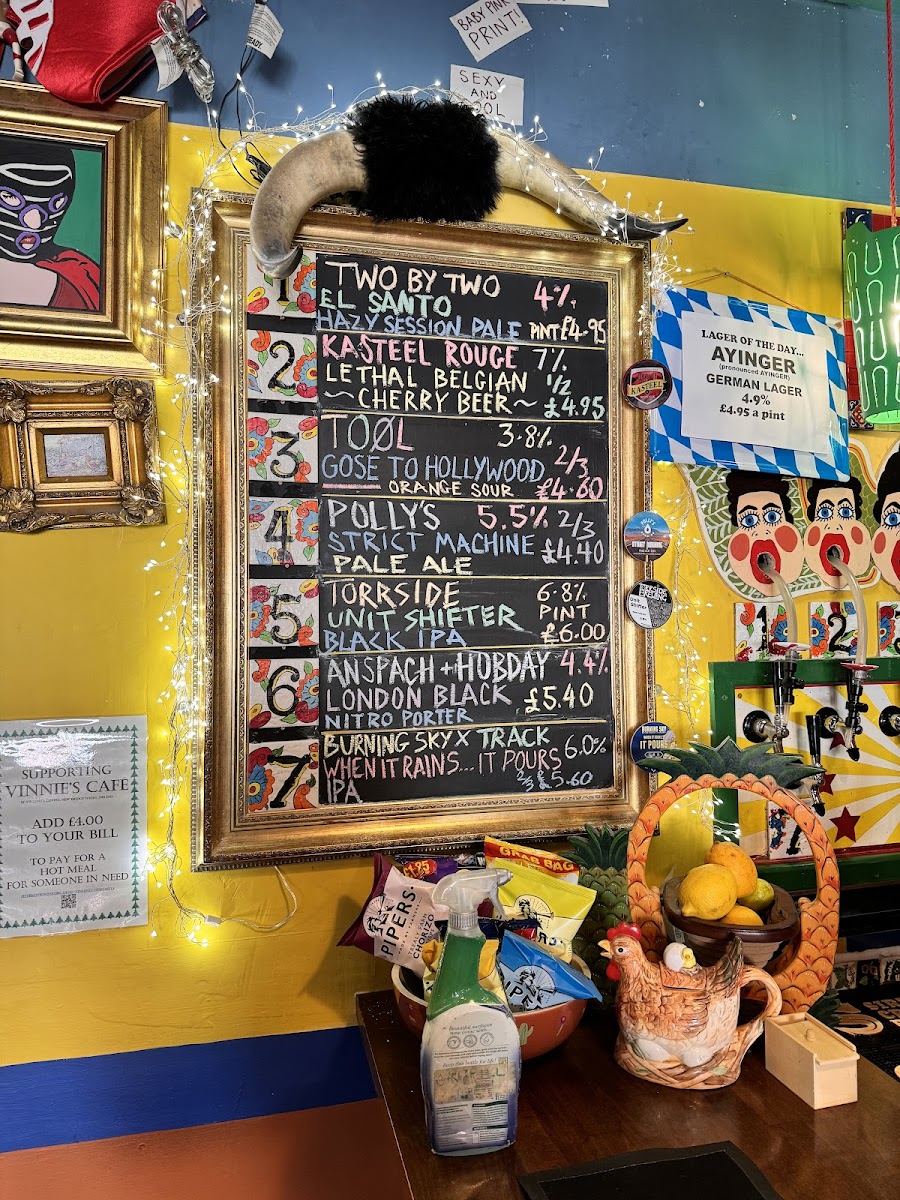 BABY PINK
PRINT!
SEXY
AND
COOL
1
TWO BY TWO
4%
EL SANTO
HAZY SESSION PALE PINT £4.95
2
KASTEEL ROUGE 7%
LETHAL BELGIAN 1/2
~ CHERRY BEER ~ £4.95
3
TOØL 3.8%
GOSE TO HOLLYWOOD 2/3
ORANGE SOUR £4.60
4
POLLY'S 5.5% 2/3
STRICT MACHINE £4.40
PALE ALE
5
TORRSIDE 6.8%
UNIT SHIFTER PINT
BLACK IPA £6.00
6
ANSPACH + HOBDAY 4.4%
LONDON BLACK £5.40
NITRO PORTER
7
BURNING SKY X TRACK 6.0%
WHEN IT RAINS... IT POURS
2/3 £5.60
IPA
KASTEEL
LAGER OF THE DAY...
AYINGER
(pronounced AYINGER)
GERMAN LAGER
4.9%
£4.95 a pint
STRICT MACHINE
Unit
Shifter
BURNING SKY
IT POURS
1
2
3
SUPPORTING
VINNIE'S CAFE
ADD £4.00
TO YOUR BILL
TO PAY FOR A
HOT MEAL
FOR SOMEONE IN NEED
£1.25
GRAB BAG
PIPERS
CHORIZO